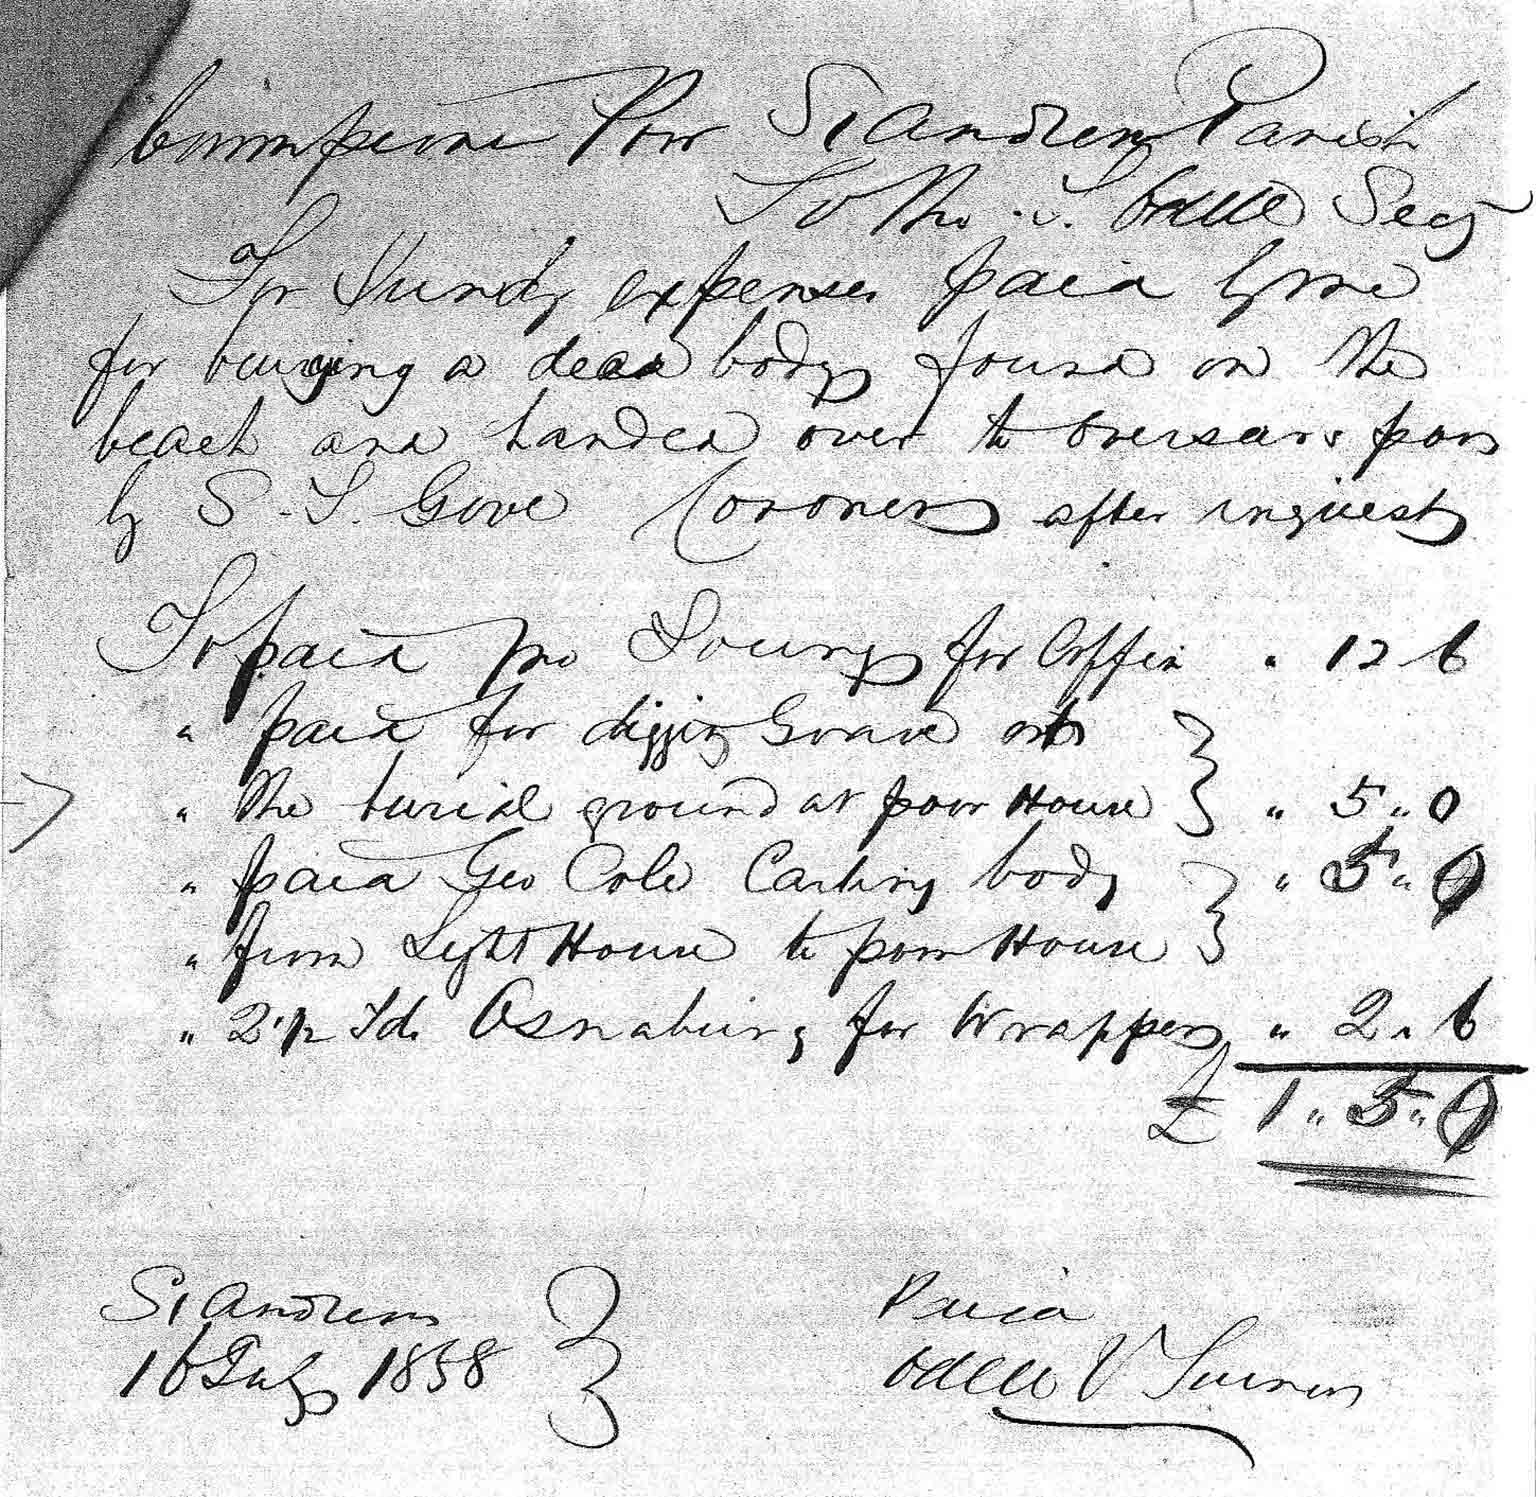 Poor St Andrews Parish
To Tho. T. Odell Secy
For Sundy expenses paid by me
for burying a dead body found on the
beach and handed over to Overseers poor
by S. T. Gove Coroner after inquest
To paid Jno Young for Coffin " 12 6
" paid for digging Grave
" the burial ground at poor House } " 5 " 0
" paid Geo Cole Carting body } " 5 " 0
" from Light House to poor House
" 2 1/2 Yds Osnaburg for Wrapper " 2 " 6
£ 1 " 5 " 0
St Andrews
16 July 1858
Paid
Odell & Turner